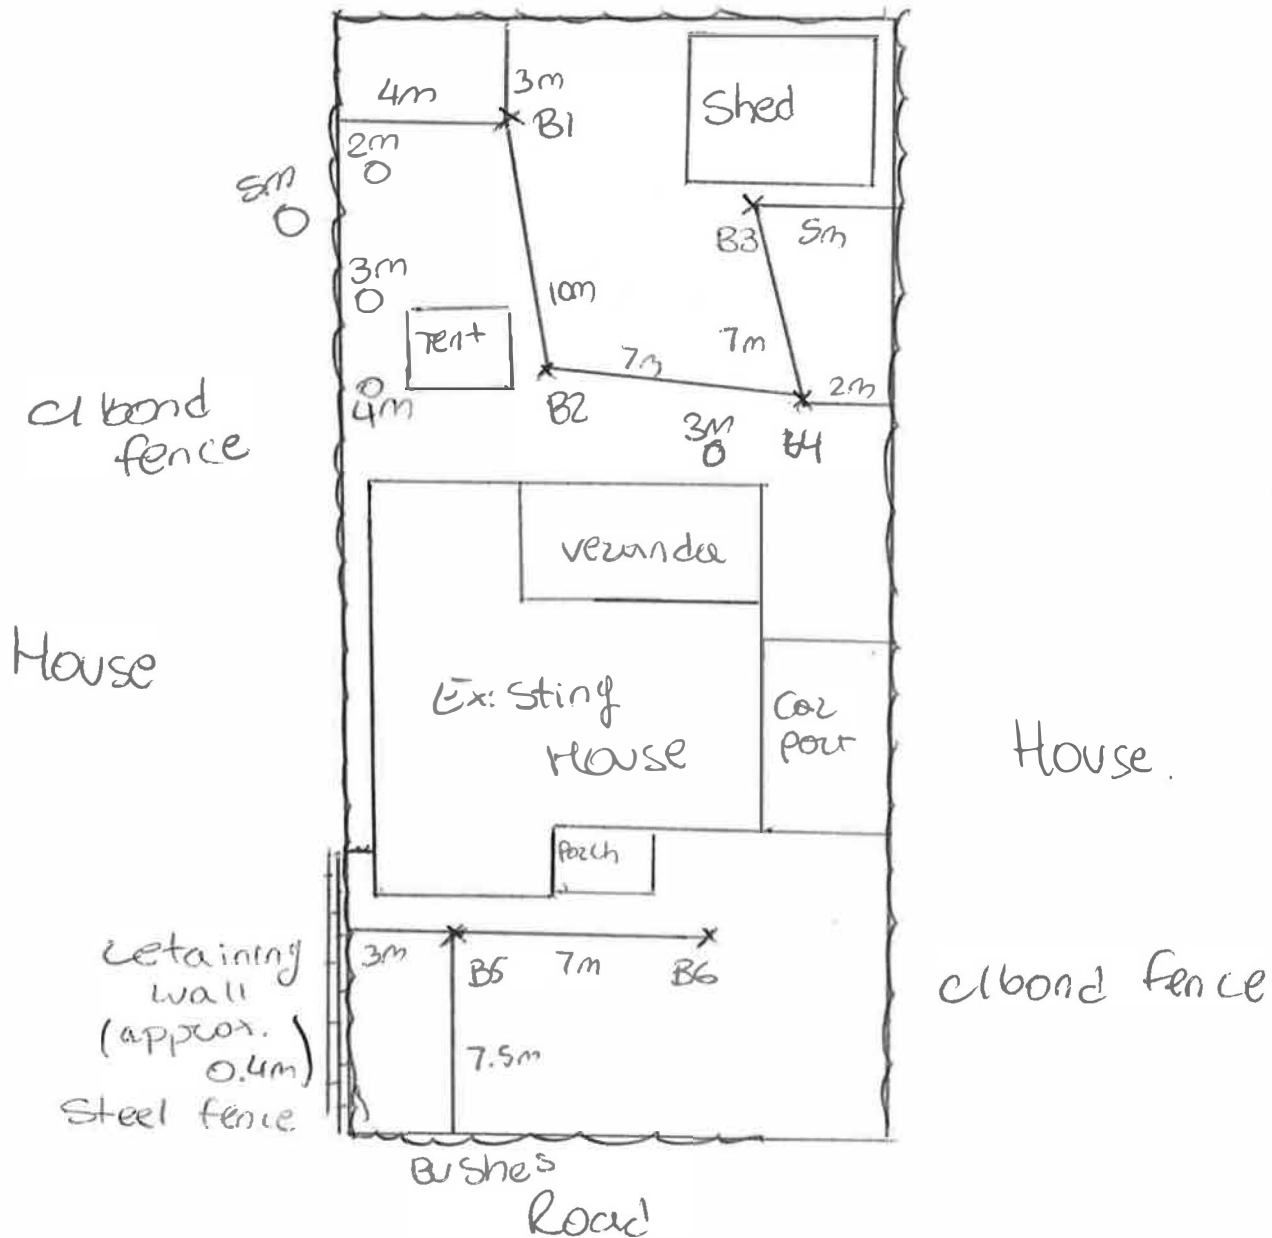 4m
3m
B1
Shed
2m
5m
B3
5m
3m
10m
Tent
7m
7m
2m
4m
B2
3m
B4
clbond
fence
veranda
House
Existing
House
Car
port
House.
Porch
retaining
wall
(approx.
0.4m)
Steel fence
3m
B5
7m
B6
clbond fence
7.5m
Bushes
Road